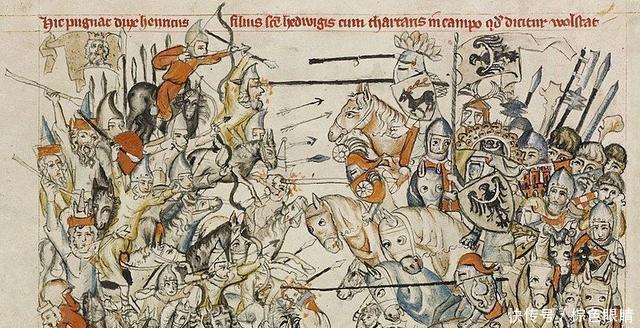 Hic pugnat dux henricus filius sce hedwigis cum thartaris in campo qd dicitur wolstat
快传号/棕色眼睛